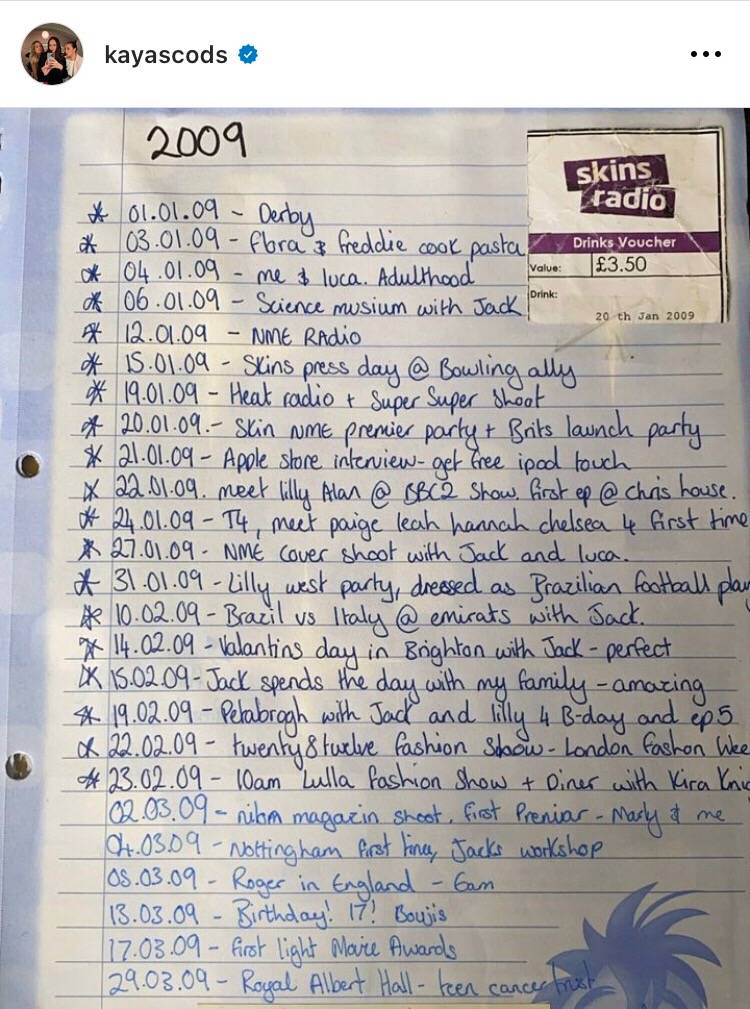 kayascods
2009
skins
radio
Drinks Voucher
Value: £3.50
Drink:
20 th Jan 2009
01.01.09 - Derby
03.01.09 - flora & freddie cook pasta
04.01.09 - me & luca. Adulthood
06.01.09 - Science musium with Jack
12.01.09 - NME RAdio
15.01.09 - Skins press day @ Bowling ally
19.01.09 - Heat radio + Super Super Shoot
20.01.09.- Skin NME premier party + Brits launch party
21.01.09 - Apple store interview - get free ipod touch
22.01.09. meet lilly Alan @ BBC2 Show, first ep @ chris house.
24.01.09 - T4, meet paige leah hannah chelsea 4 first time
27.01.09 - NME cover shoot with Jack and luca.
31.01.09 - Lilly west party, dressed as Brazilian football play
10.02.09 - Brazil vs Italy @ emirats with Jack.
14.02.09 - Valantins day in Brighton with Jack - perfect
15.02.09 - Jack spends the day with my family - amazing
19.02.09 - Petabrogh with Jack and lilly 4 B-day and ep 5
22.02.09 - twenty8twelve fashion Show - London fashon Wee
23.02.09 - 10am Lulla fashion Show + Diner with Kira Knig
02.03.09 - magazin shoot. first Premiar - Marly & me
04.03.09 - Nottingham first time, Jacks workshop
08.03.09 - Roger in England - 6am
13.03.09 - Birthday! 17! Boujis
17.03.09 - first light Movie Awards
29.03.09 - Royal Albert Hall - teen cancer trust